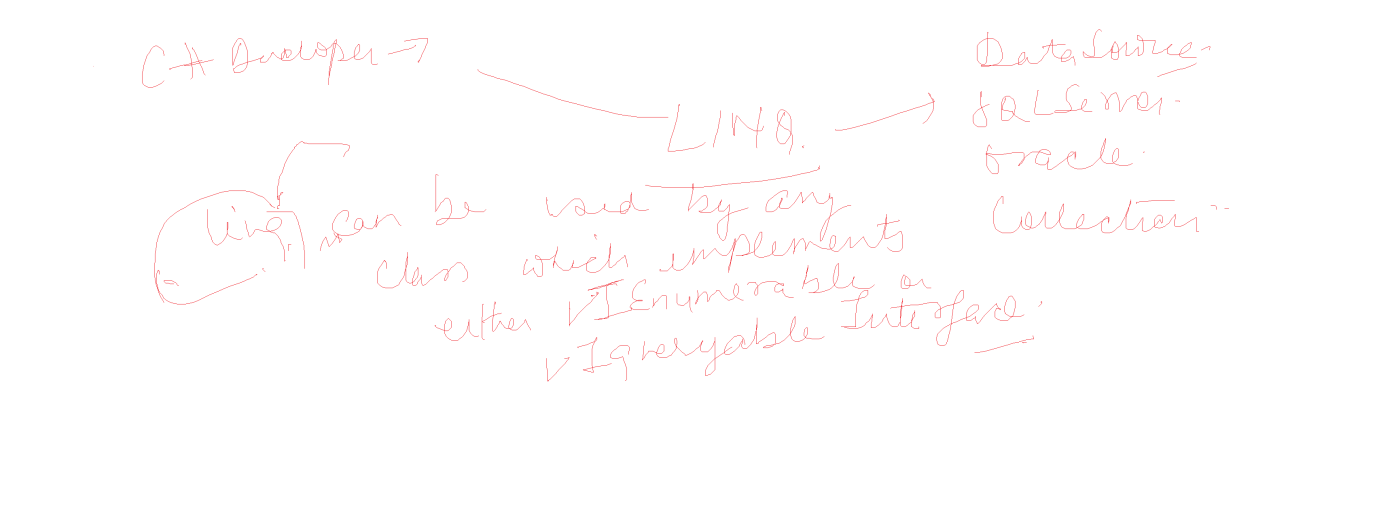 C# Developer →
LINQ.
Data Source-
SQL Server.
Oracle.
Collection--
Linq can be used by any
class which implements
either IEnumerable or
Iqueryable Interface.